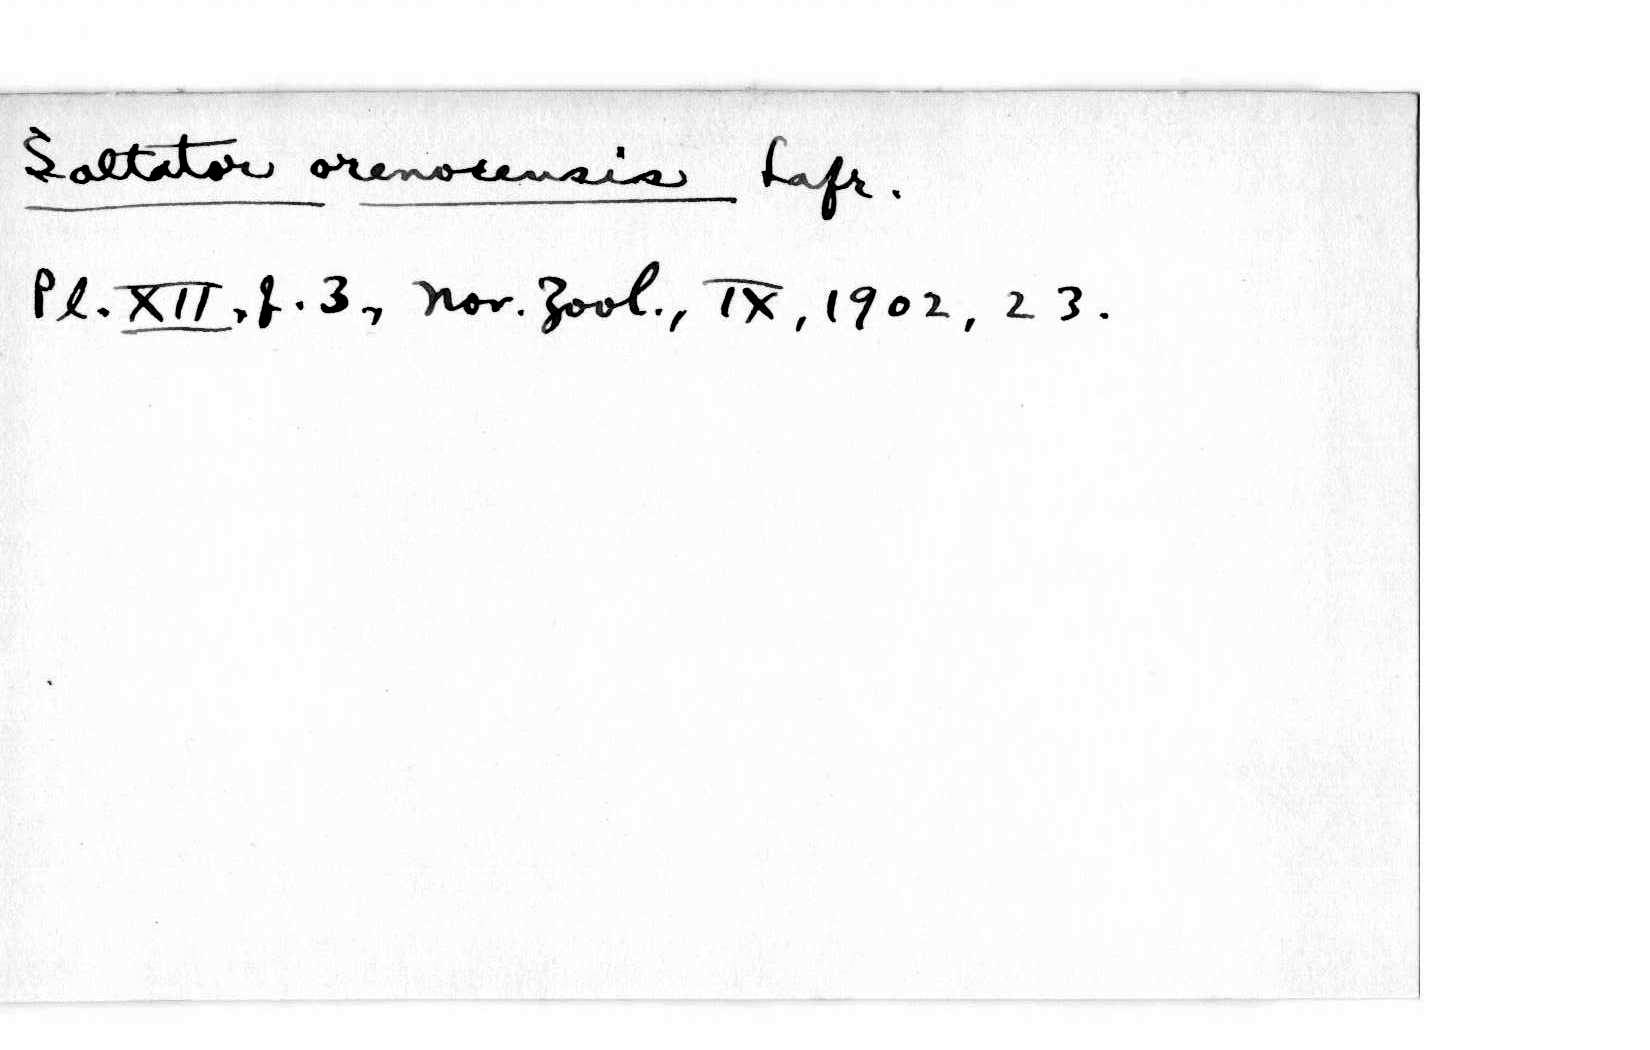 Saltator orenocensis Lafr.
Pl. XII, f. 3, Nov. Zool., IX, 1902, 23.